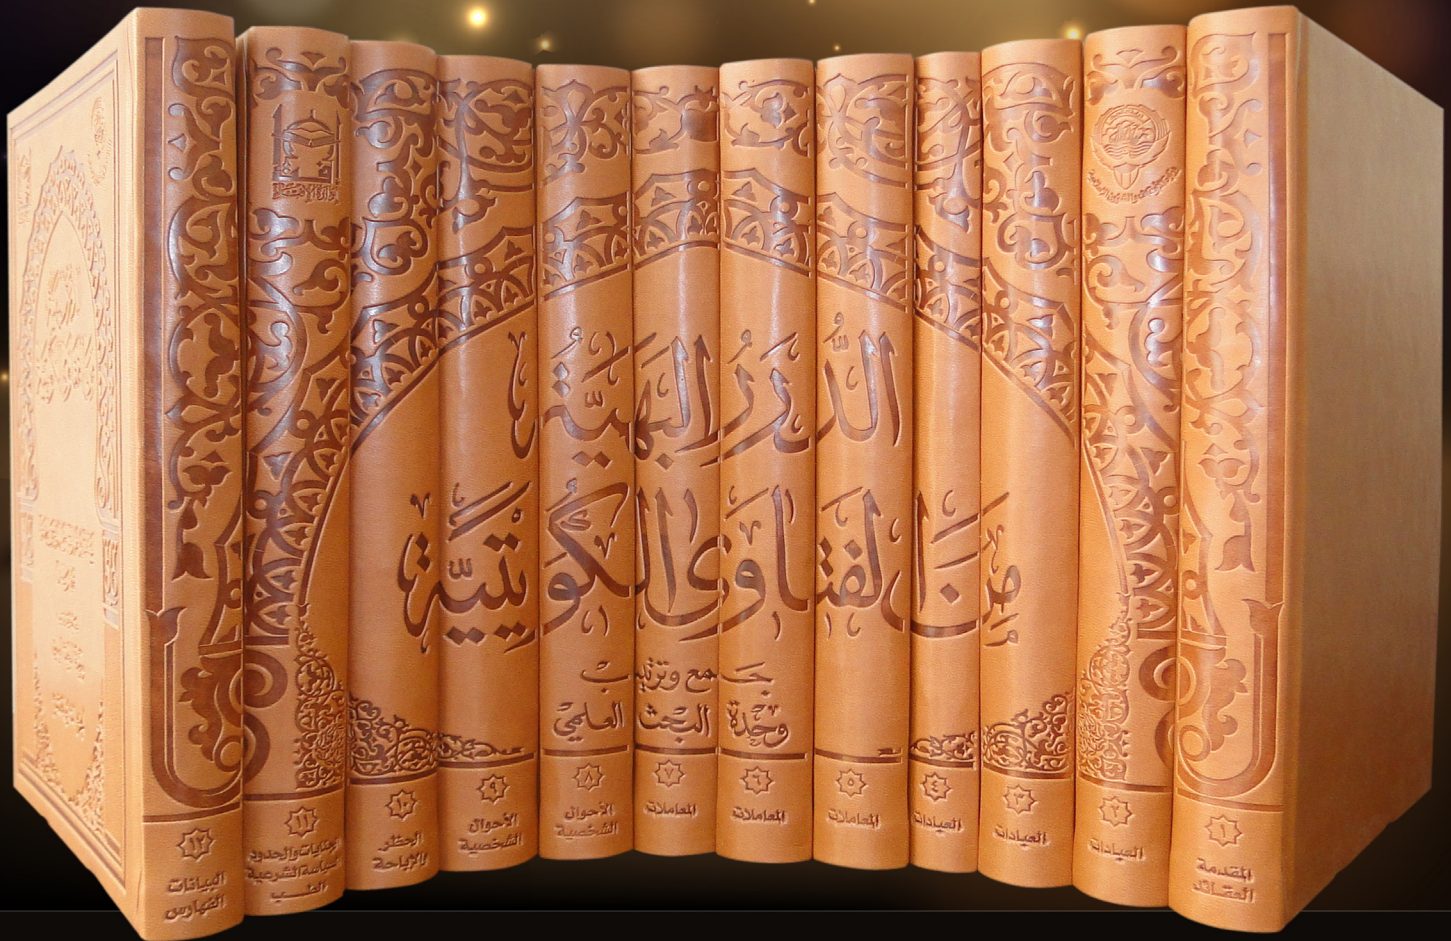 الدُّرَرُ البَهِيَّةُ
مِنَ الفَتَاوَى الكُوَيْتِيَّة
جَمع وَترتيب
وحْدَة البَحْث العِلمي
١
المقدمة
العقائد
٢
العبادات
٣
العبادات
٤
العبادات
٥
المعاملات
٦
المعاملات
٧
المعاملات
٨
الأحوال
الشخصية
٩
الأحوال
الشخصية
١٠
الحظر
والإباحة
١١
الجنايات والحدود
السياسة الشرعية
الطب
١٢
البيانات
الفهارس